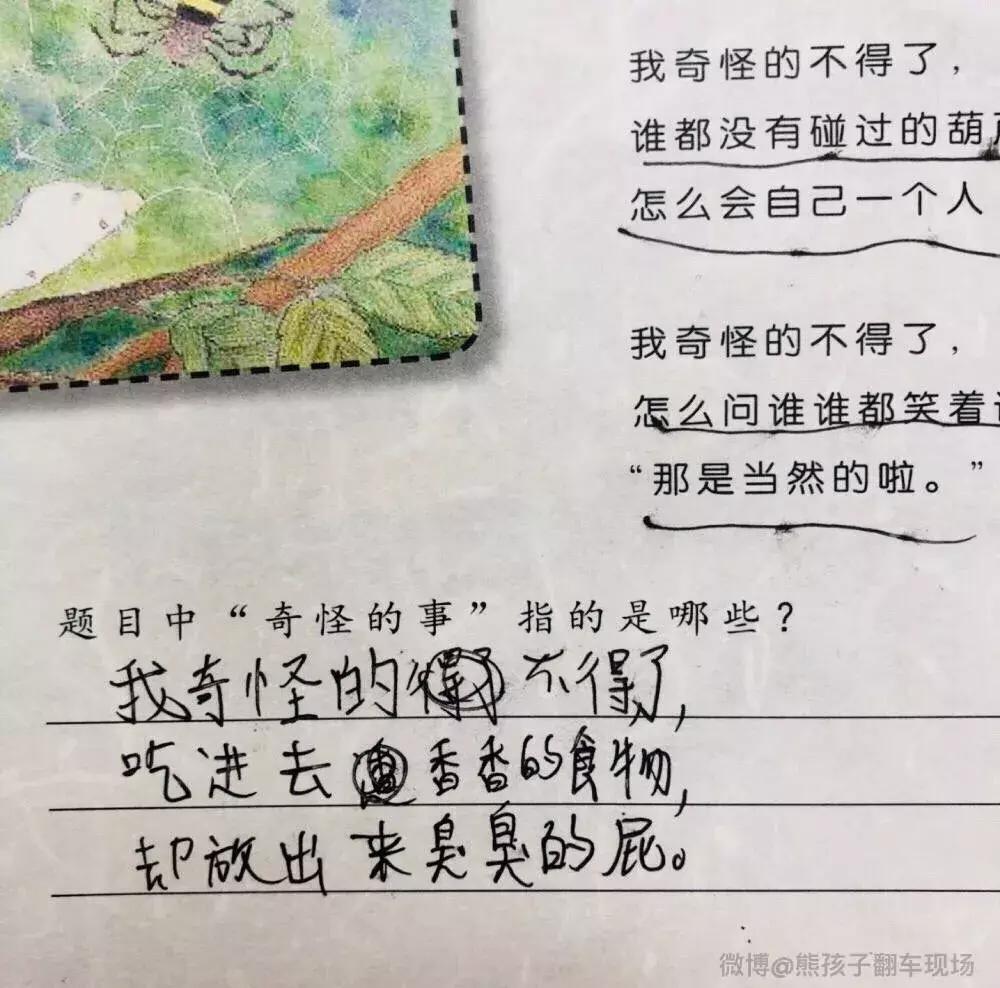 我奇怪的不得了，
谁都没有碰过的葫
怎么会自己一个人
我奇怪的不得了，
怎么问谁谁都笑着
“那是当然的啦。”
题目中“奇怪的事”指的是哪些？
我奇怪的不得了，
吃进去香香的食物，
却放出来臭臭的屁。
微博@熊孩子翻车现场